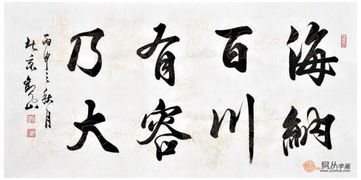 海納
百川
有容
乃大
丙申之秋月
易从字画